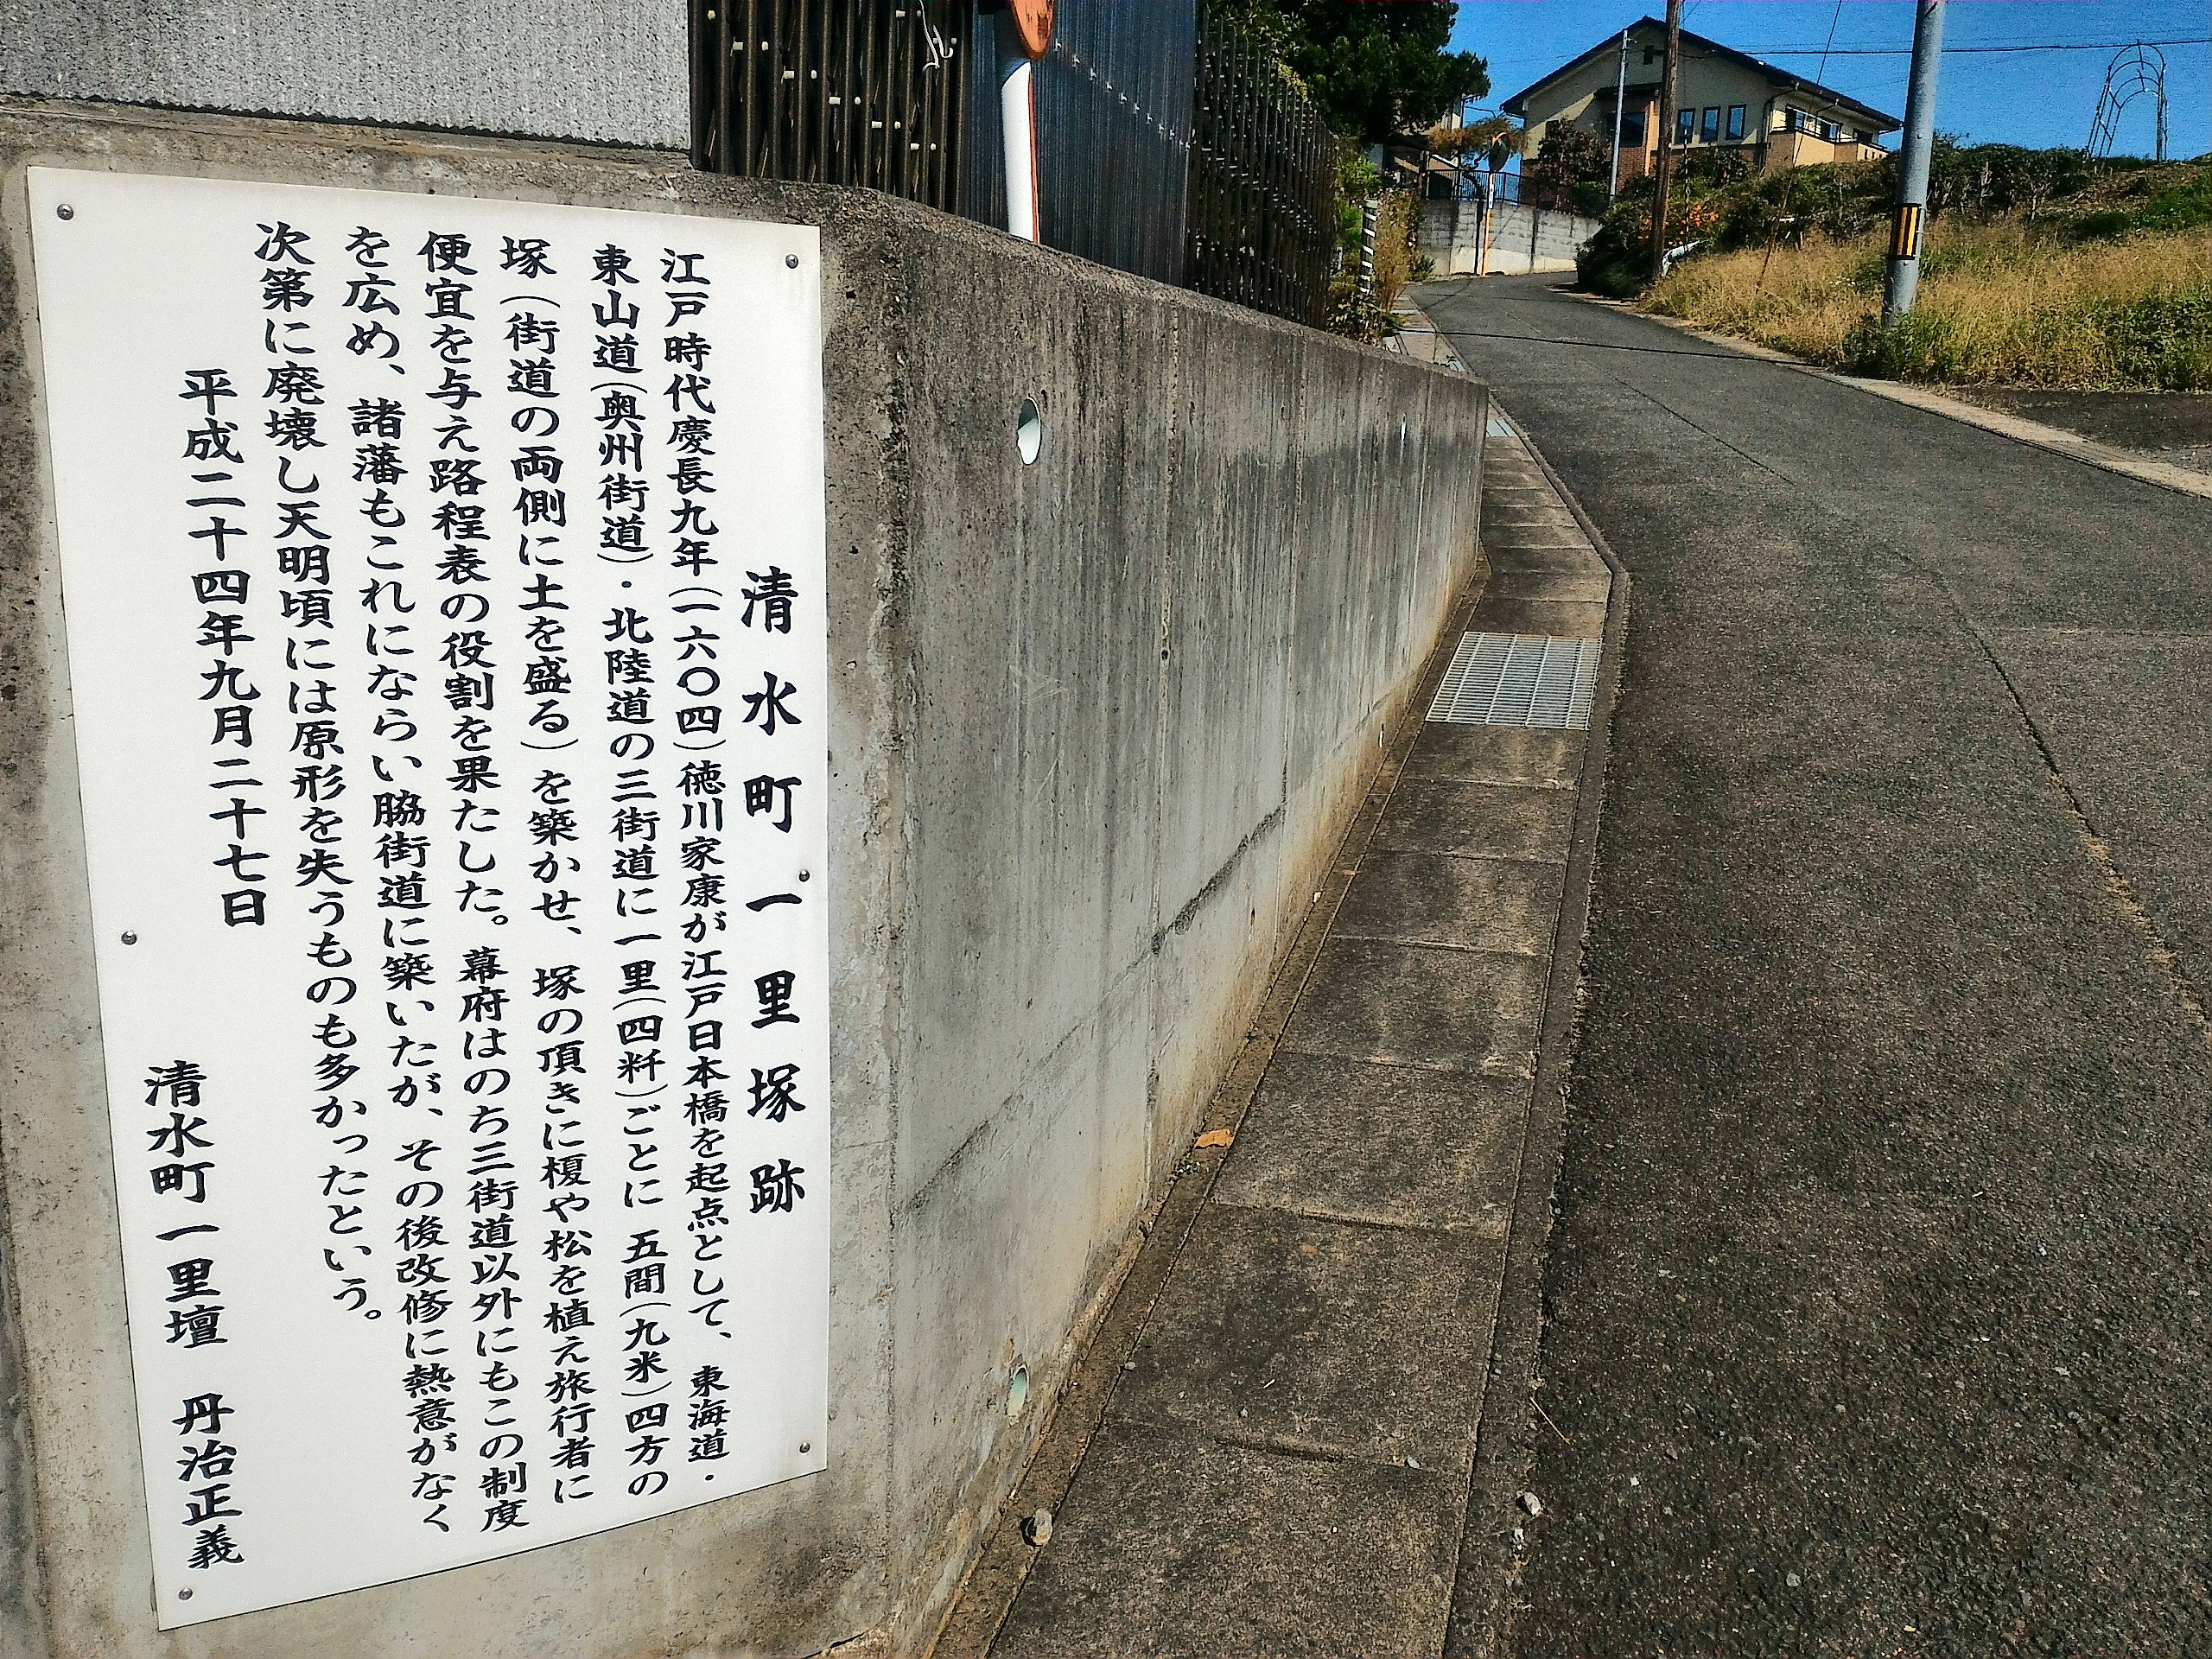 清水町一里塚跡
江戸時代慶長九年(一六〇四)徳川家康が江戸日本橋を起点として、東海道・
東山道(奥州街道)・北陸道の三街道に一里(四粁)ごとに五間(九米)四方の
塚(街道の両側に土を盛る)を築かせ、塚の頂きに榎や松を植え旅行者に
便宜を与え路程表の役割を果たした。幕府はのち三街道以外にもこの制度
を広め、諸藩もこれにならい脇街道に築いたが、その後改修に熱意がなく
次第に廃壊し天明頃には原形を失うものも多かったという。
平成二十四年九月二十七日
清水町一里壇 丹治正義